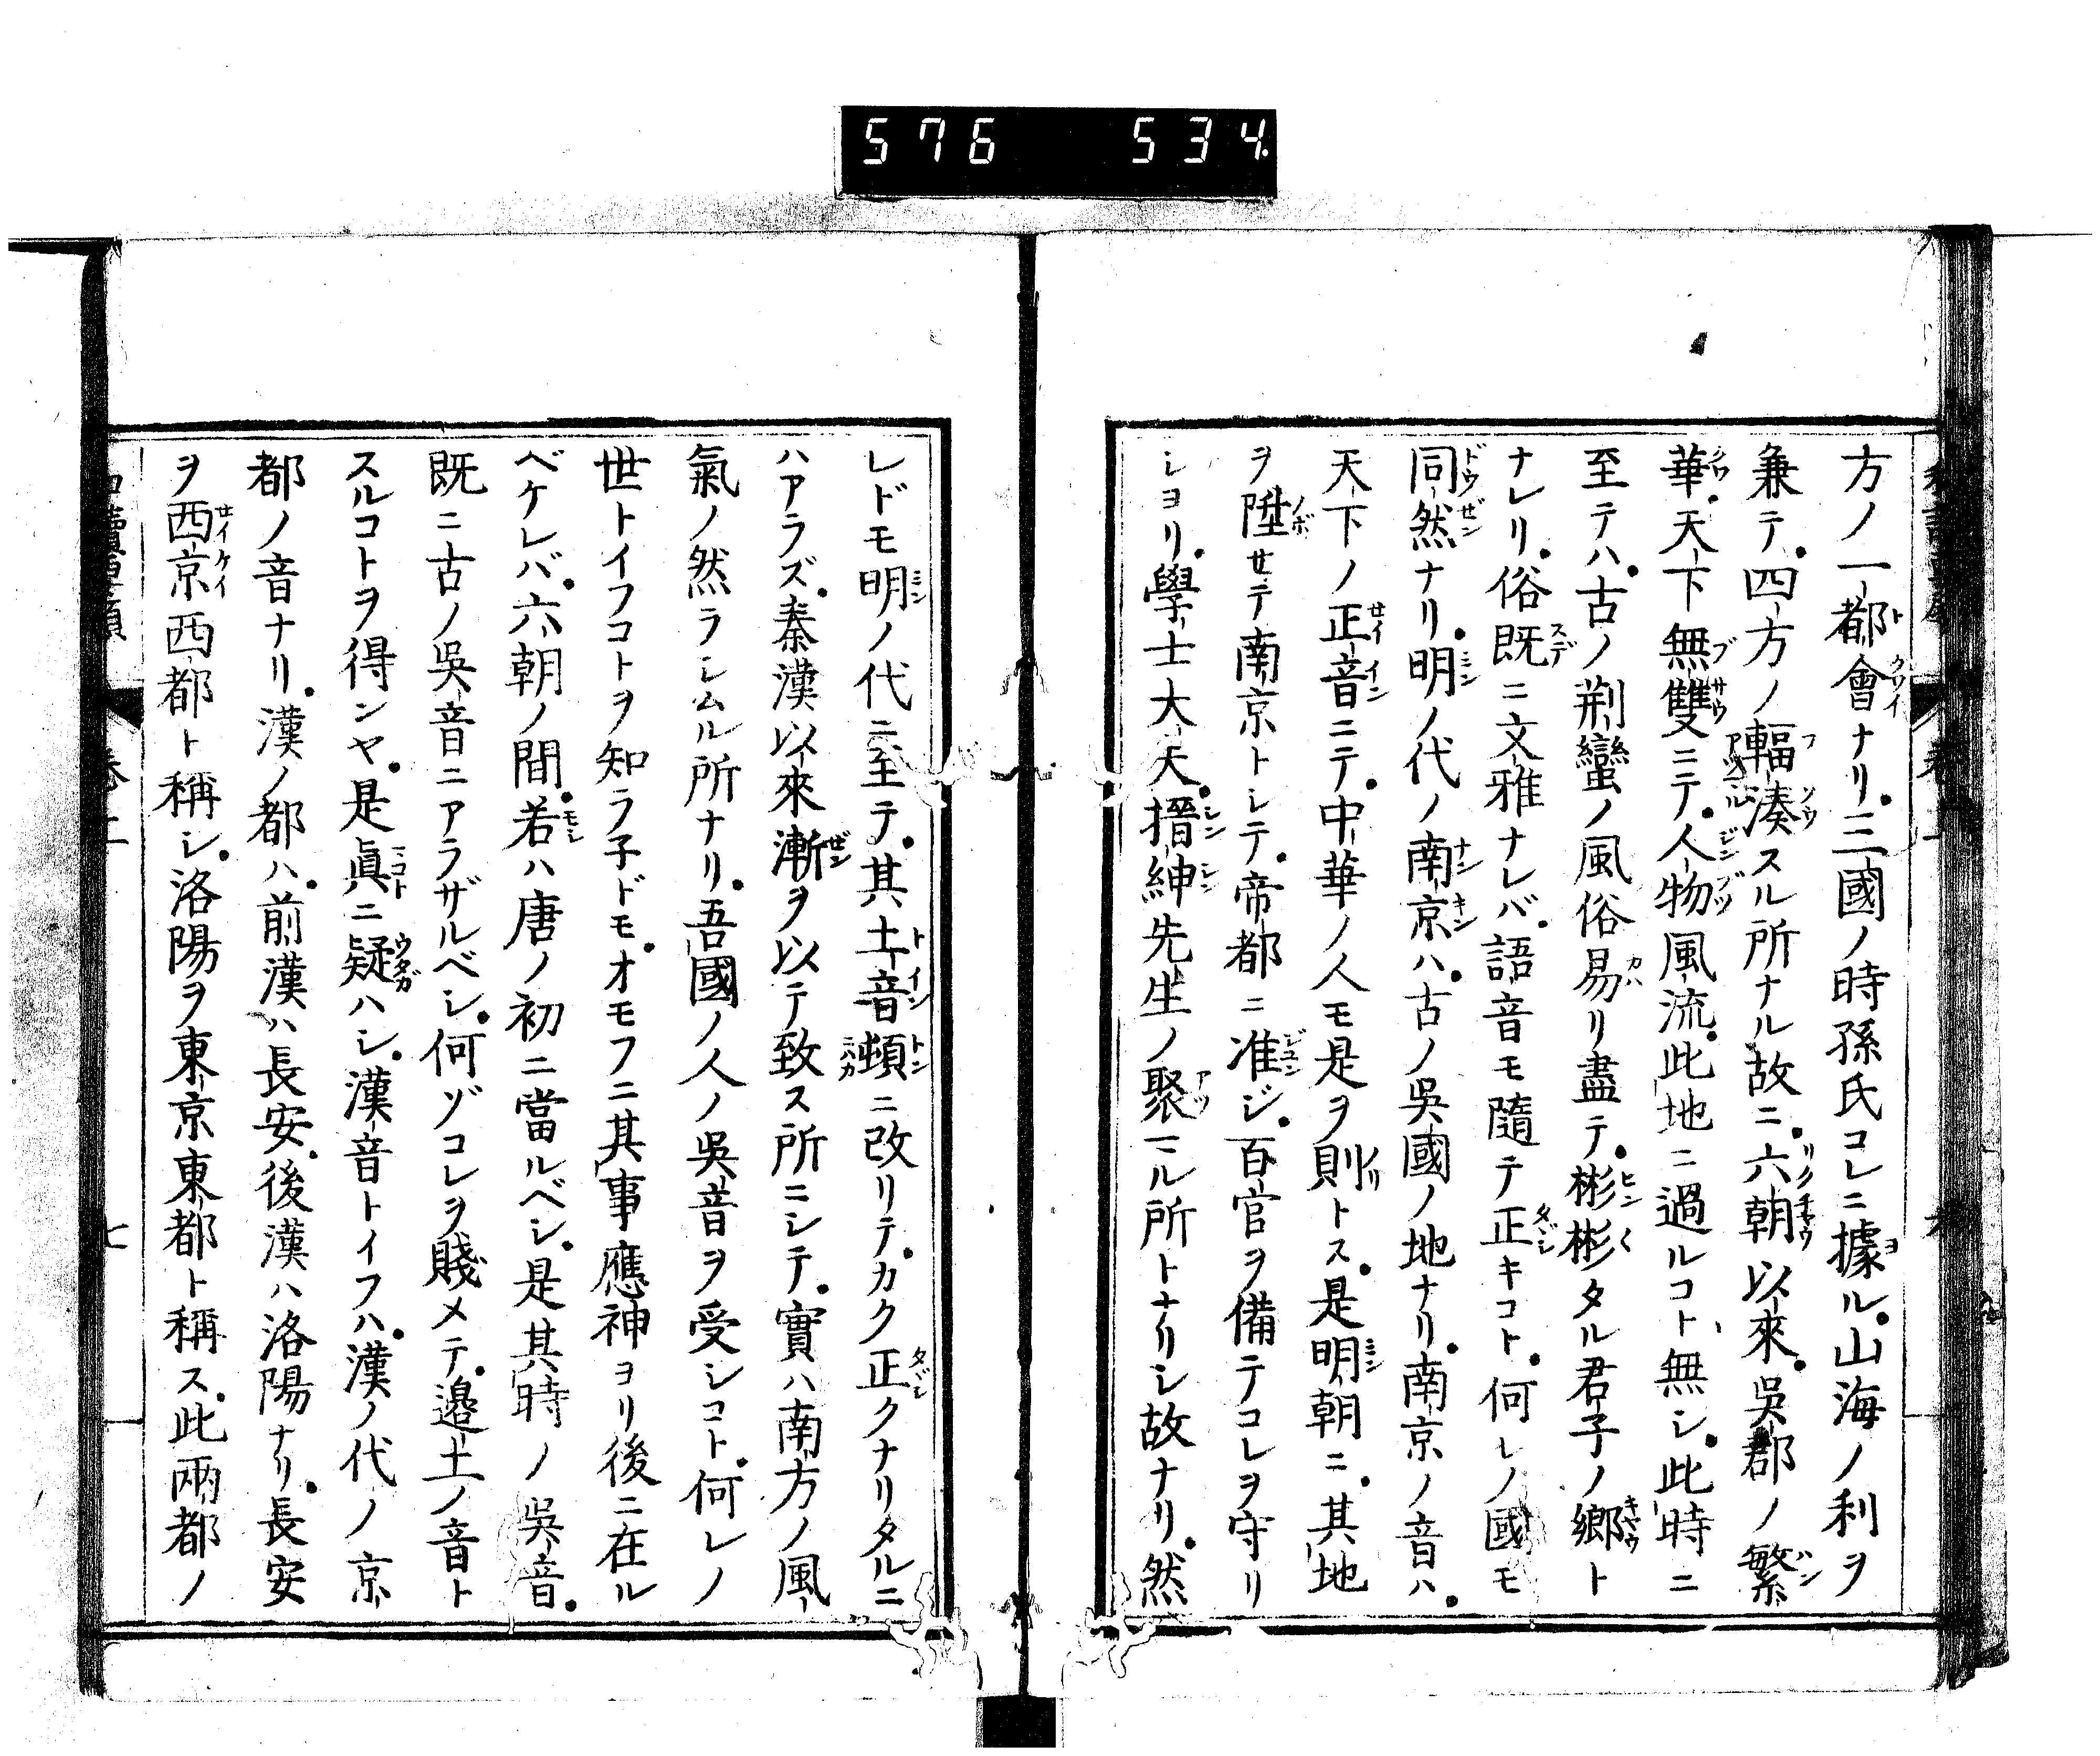 576 534
方ノ一都會ナリ三國ノ時孫氏コレニ據ル山海ノ利ヲ
兼テ四方ノ輻湊スル所ナル故ニ六朝以來吳郡ノ繁
華天下無雙ニテ人物風流此地ニ過ルコト無シ此時ニ
至テハ古ノ荆蠻ノ風俗易リ盡テ彬彬タル君子ノ鄉ト
ナレリ俗既ニ文雅ナレバ語音モ隨テ正キコト何レノ國モ
同然ナリ明ノ代ノ南京ハ古ノ吳國ノ地ナリ南京ノ音ハ
天下ノ正音ニテ中華ノ人モ是ヲ則トス是明朝ニ其地
ヲ陞セテ南京トシテ帝都ニ准ジ百官ヲ備テコレヲ守リ
シヨリ學士大夫搢紳先生ノ聚マル所トナリシ故ナリ然
レドモ明ノ代ニ至テ其土音頓ニ改リテカク正クナリタルニ
ハアラズ秦漢以來漸ヲ以テ致ス所ニシテ實ハ南方ノ風
氣ノ然ラシムル所ナリ吾國ノ人ノ吳音ヲ受シコト何レノ
世トイフコトヲ知ラ子ドモオモフニ其事應神ヨリ後ニ在ル
ベケレバ六朝ノ間若ハ唐ノ初ニ當ルベシ是其時ノ吳音
既ニ古ノ吳音ニアラザルベシ何ゾコレヲ賤メテ邊土ノ音ト
スルコトヲ得ンヤ是眞ニ疑ハシ漢音トイフハ漢ノ代ノ京
都ノ音ナリ漢ノ都ハ前漢ハ長安後漢ハ洛陽ナリ長安
ヲ西京西都ト稱シ洛陽ヲ東京東都ト稱ス此兩都ノ
七